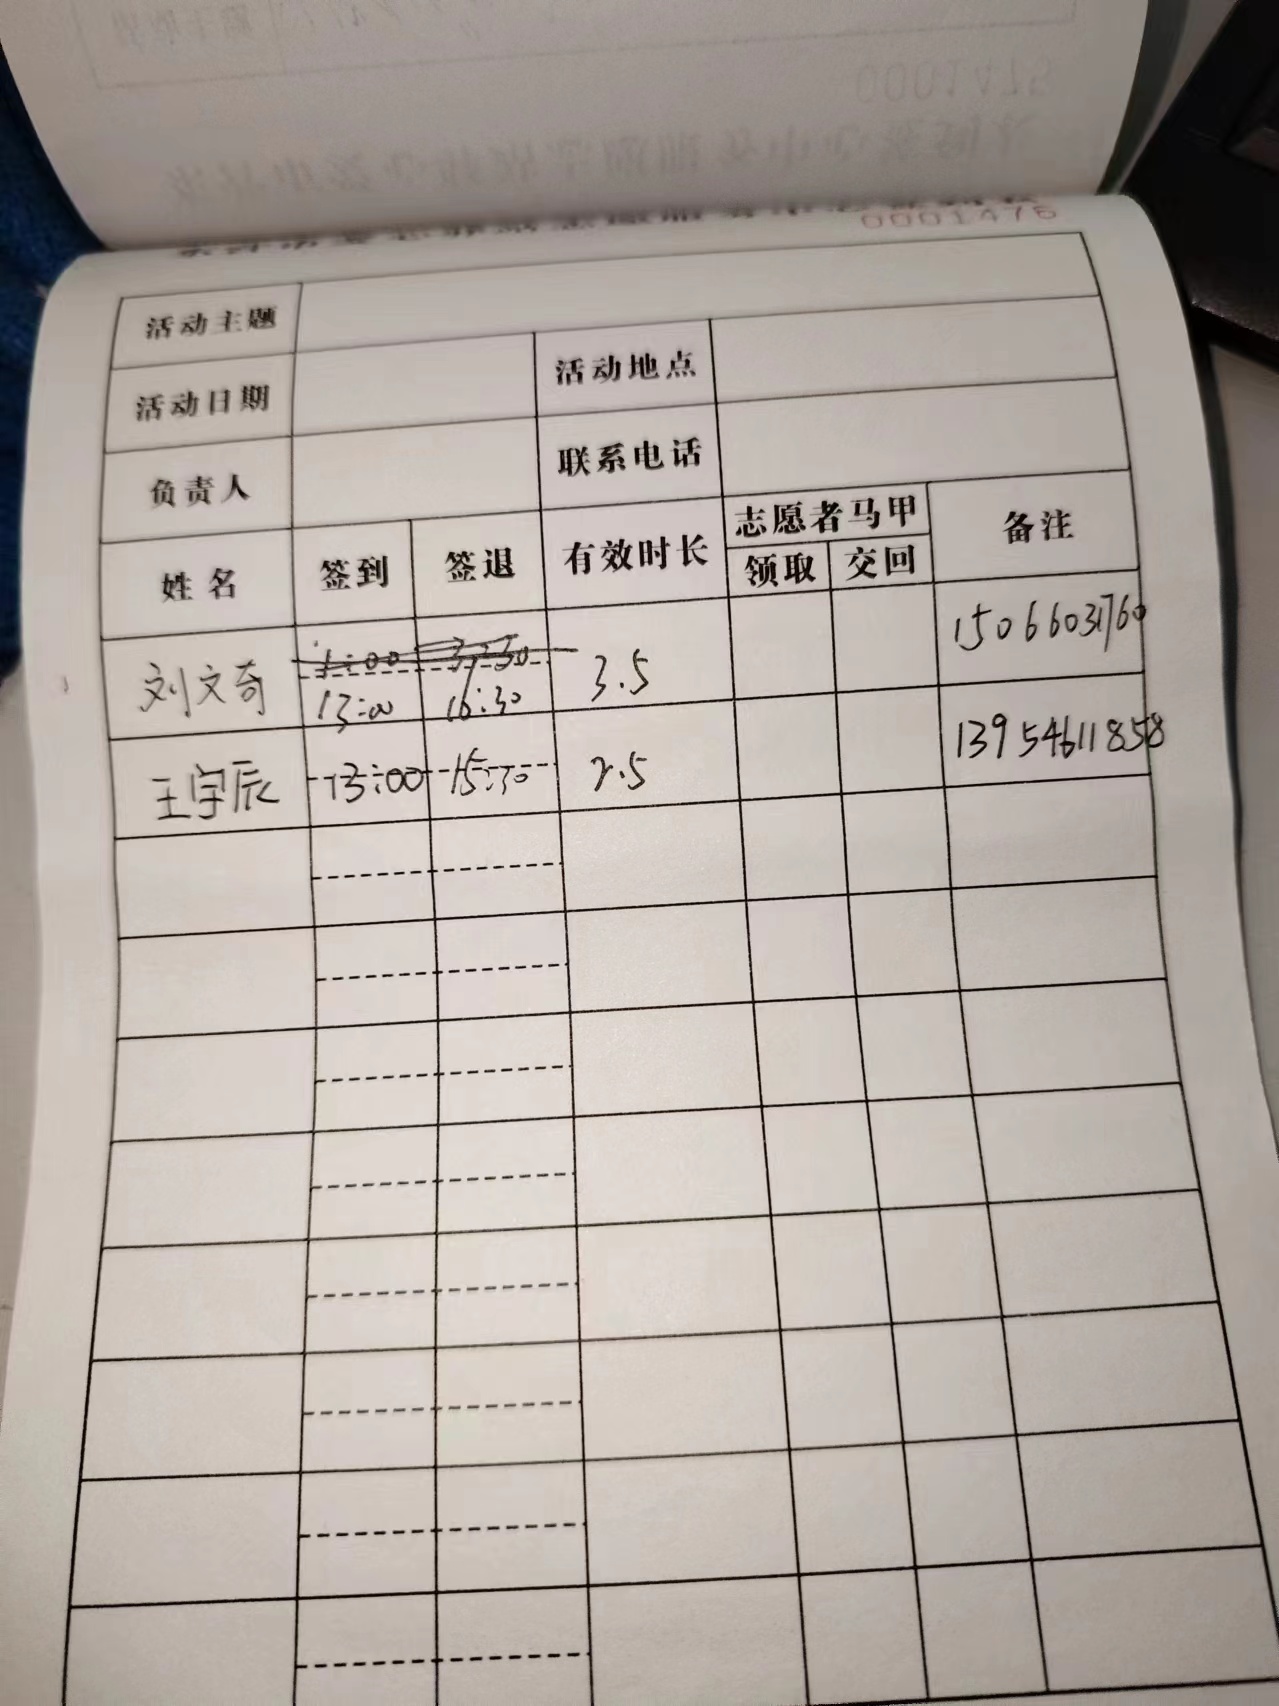 0001476
活动主题
活动日期 活动地点
负责人 联系电话
姓名 签到 签退 有效时长 志愿者马甲 备注
领取 交回
刘文奇 13:00 16:30 3.5 15066031760
王宇辰 13:00 15:30 2.5 13954611858